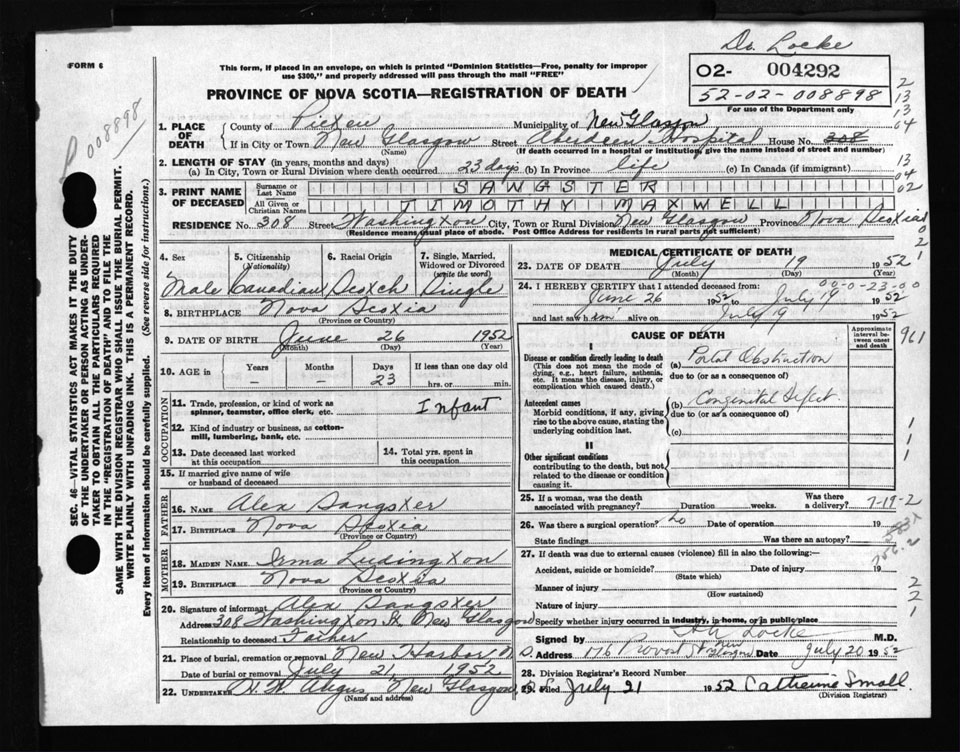 Dr Locke
FORM 6
This form, if placed in an envelope, on which is printed "Dominion Statistics—Free, penalty for improper
use $300," and properly addressed will pass through the mail "FREE"
02- 004292
52-02-008898
For use of the Department only
PROVINCE OF NOVA SCOTIA—REGISTRATION OF DEATH
008898
2
13
13
04
1. PLACE OF DEATH
County of Pictou Municipality of New Glasgow
If in City or Town New Glasgow Street Aberdeen Hospital House No. 308
(Name) (If death occurred in a hospital or institution, give the name instead of street and number)
2. LENGTH OF STAY (in years, months and days)
(a) In City, Town or Rural Division where death occurred 23 days (b) In Province life (c) In Canada (if immigrant)
13
04
02
3. PRINT NAME OF DECEASED
Surname or Last Name SANGSTER
All Given or Christian Names TIMOTHY MAXWELL
RESIDENCE No. 308 Street Washington City, Town or Rural Division New Glasgow Province Nova Scotia
(Residence means usual place of abode. Post Office Address for residents in rural parts not sufficient)
0
2
1
4. Sex
Male
5. Citizenship
(Nationality)
Canadian
6. Racial Origin
Scotch
7. Single, Married,
Widowed or Divorced
(write the word)
Single
8. BIRTHPLACE Nova Scotia
(Province or Country)
9. DATE OF BIRTH June 26 1952
(Month) (Day) (Year)
10. AGE in Years – Months – Days 23 If less than one day old
hrs. or min.
OCCUPATION
11. Trade, profession, or kind of work as
spinner, teamster, office clerk, etc. Infant
12. Kind of industry or business, as cotton-
mill, lumbering, bank, etc.
13. Date deceased last worked
at this occupation
14. Total yrs. spent in
this occupation
15. If married give name of wife
or husband of deceased
FATHER
16. Name Alex Sangster
17. Birthplace Nova Scotia
(Province or Country)
MOTHER
18. Maiden Name Irma Ludington
19. Birthplace Nova Scotia
(Province or Country)
20. Signature of informant Alex Sangster
Address 308 Washington St. New Glasgow
Relationship to deceased Father
21. Place of burial, cremation or removal New Harbor
Date of burial or removal July 21 1952
22. Undertaker H. W. Angus New Glasgow
(Name and address)
MEDICAL CERTIFICATE OF DEATH
23. DATE OF DEATH July 19 1952
(Month) (Day) (Year)
24. I HEREBY CERTIFY that I attended deceased from: 000-23-00
June 26 1952 to July 19 1952
and last saw him alive on July 19 1952
CAUSE OF DEATH
Approximate interval between onset and death
961
I
Disease or condition directly leading to death
(This does not mean the mode of
dying, e.g., heart failure, asthenia,
etc. It means the disease, injury, or
complication which caused death.)
(a) Portal Obstruction
due to (or as a consequence of)
Antecedent causes
Morbid conditions, if any, giving
rise to the above cause, stating the
underlying condition last.
(b) Congenital Defect
due to (or as a consequence of)
(c)
1
1
1
II
Other significant conditions
contributing to the death, but not
related to the disease or condition
causing it.
25. If a woman, was the death
associated with pregnancy? Duration weeks. Was there a delivery? 7-19-2
26. Was there a surgical operation? no Date of operation 19
State findings Was there an autopsy?
756.2
27. If death was due to external causes (violence) fill in also the following:—
Accident, suicide or homicide? Date of injury 19
(State which)
Manner of injury
(How sustained)
Nature of injury
2
2
1
Specify whether injury occurred in industry, in home, or in public place
Signed by Locke M.D.
Address 176 Provost St New Glasgow Date July 20 1952
28. Division Registrar's Record Number
29. Filed July 21 1952 Catherine Small
(Division Registrar)
SEC. 46—VITAL STATISTICS ACT MAKES IT THE DUTY
OF THE UNDERTAKER OR PERSON ACTING AS UNDER-
TAKER TO OBTAIN ALL THE PARTICULARS REQUIRED
IN THE "REGISTRATION OF DEATH" AND TO FILE THE
SAME WITH THE DIVISION REGISTRAR WHO SHALL ISSUE THE BURIAL PERMIT.
WRITE PLAINLY WITH UNFADING INK. THIS IS A PERMANENT RECORD.
Every item of information should be carefully supplied. (See reverse side for instructions.)